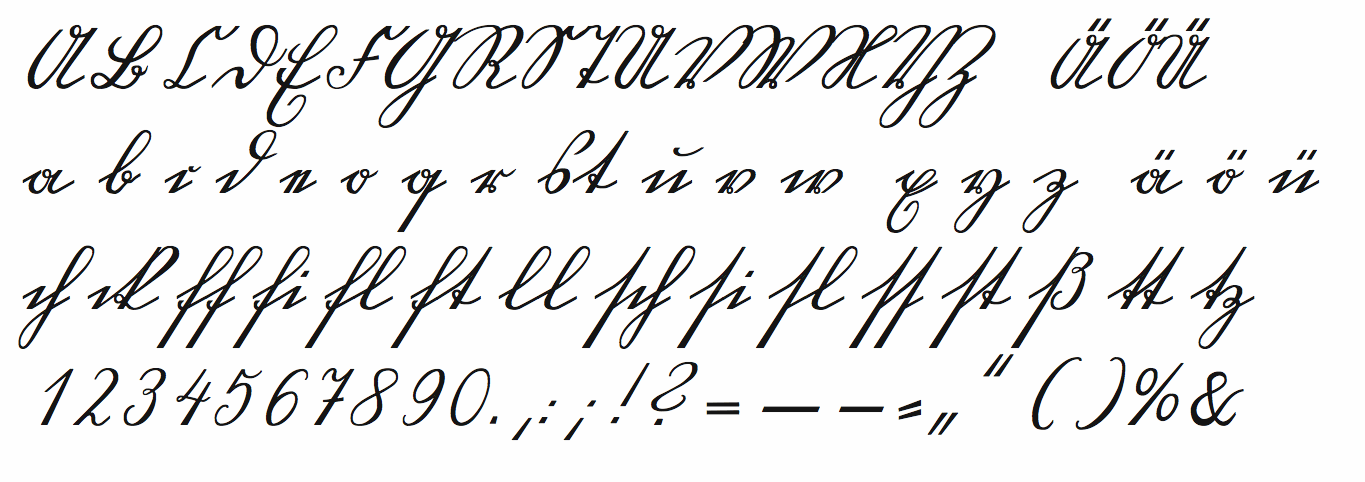 A B C D E F G R S T U V W X Y Z Ä Ö Ü
a b c d e o q r s t u v w x y z ä ö ü
ch ck ff fi fl ft ll ſch ſi ſl ſſ ſt ß tt tz
1 2 3 4 5 6 7 8 9 0 . , : ; ! ? = — – - „ “ ( ) % &